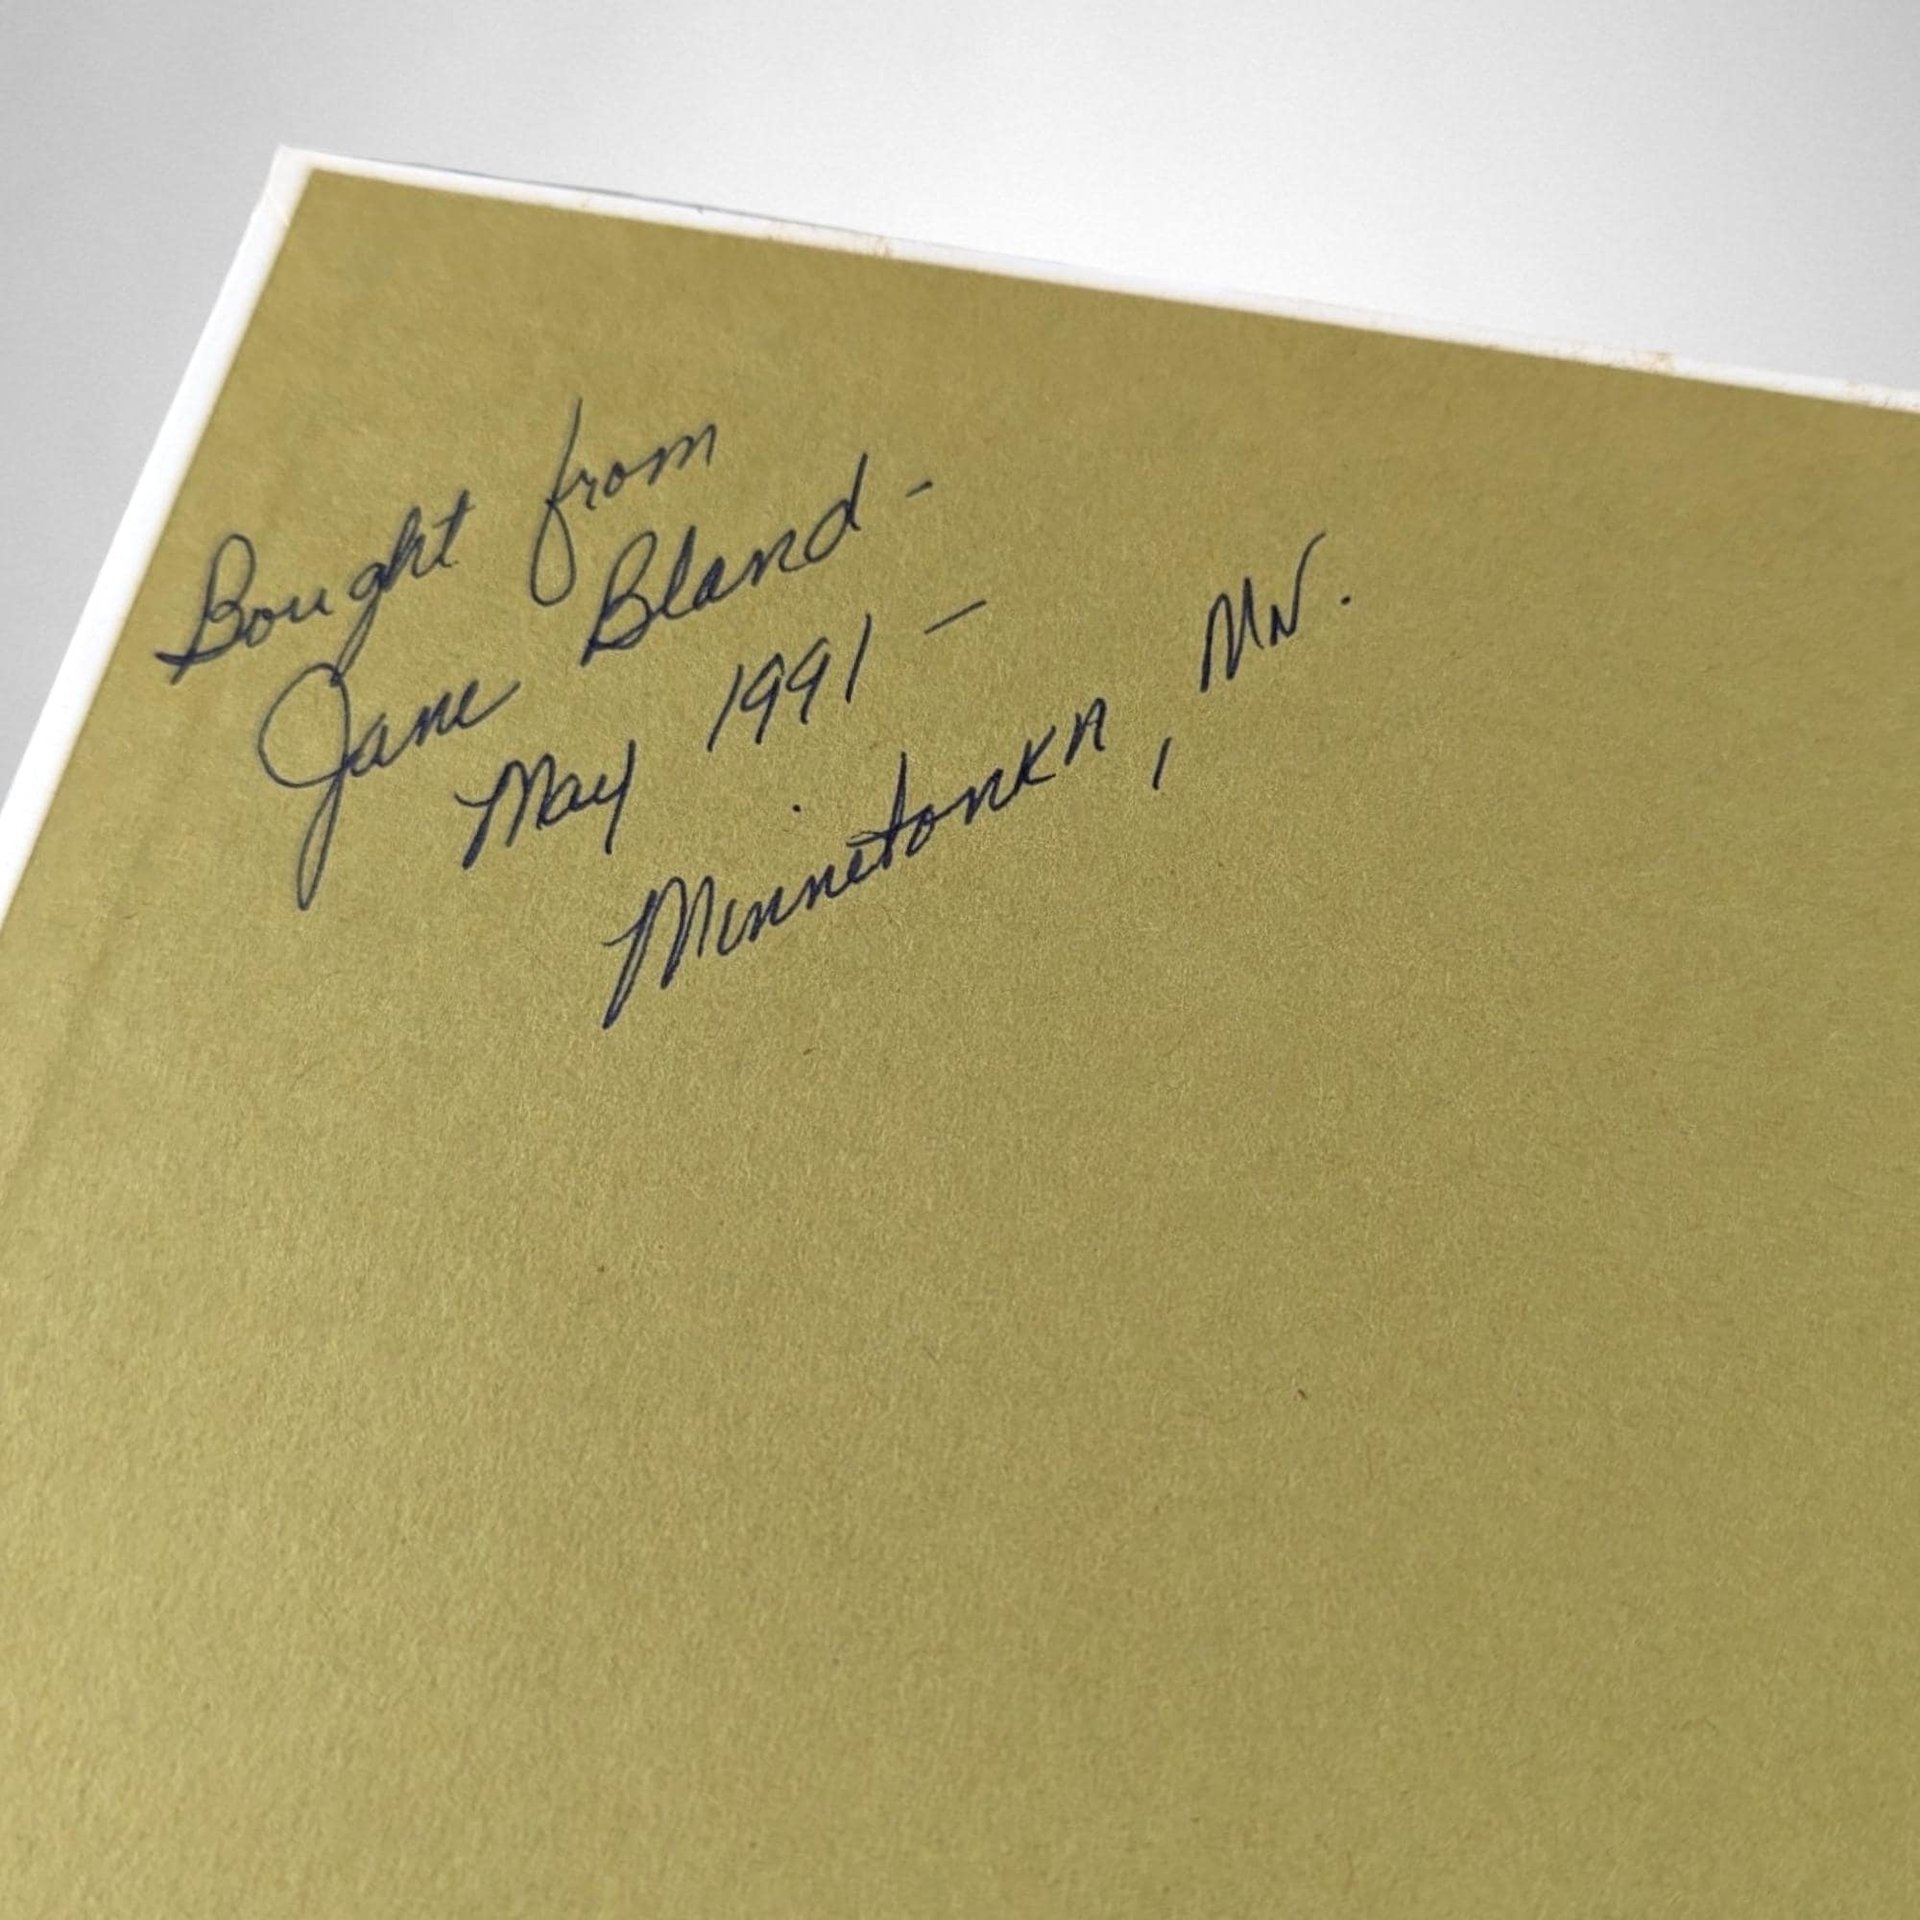 Bought from
Jane Bland -
May 1991 -
Minnetonka, MN.